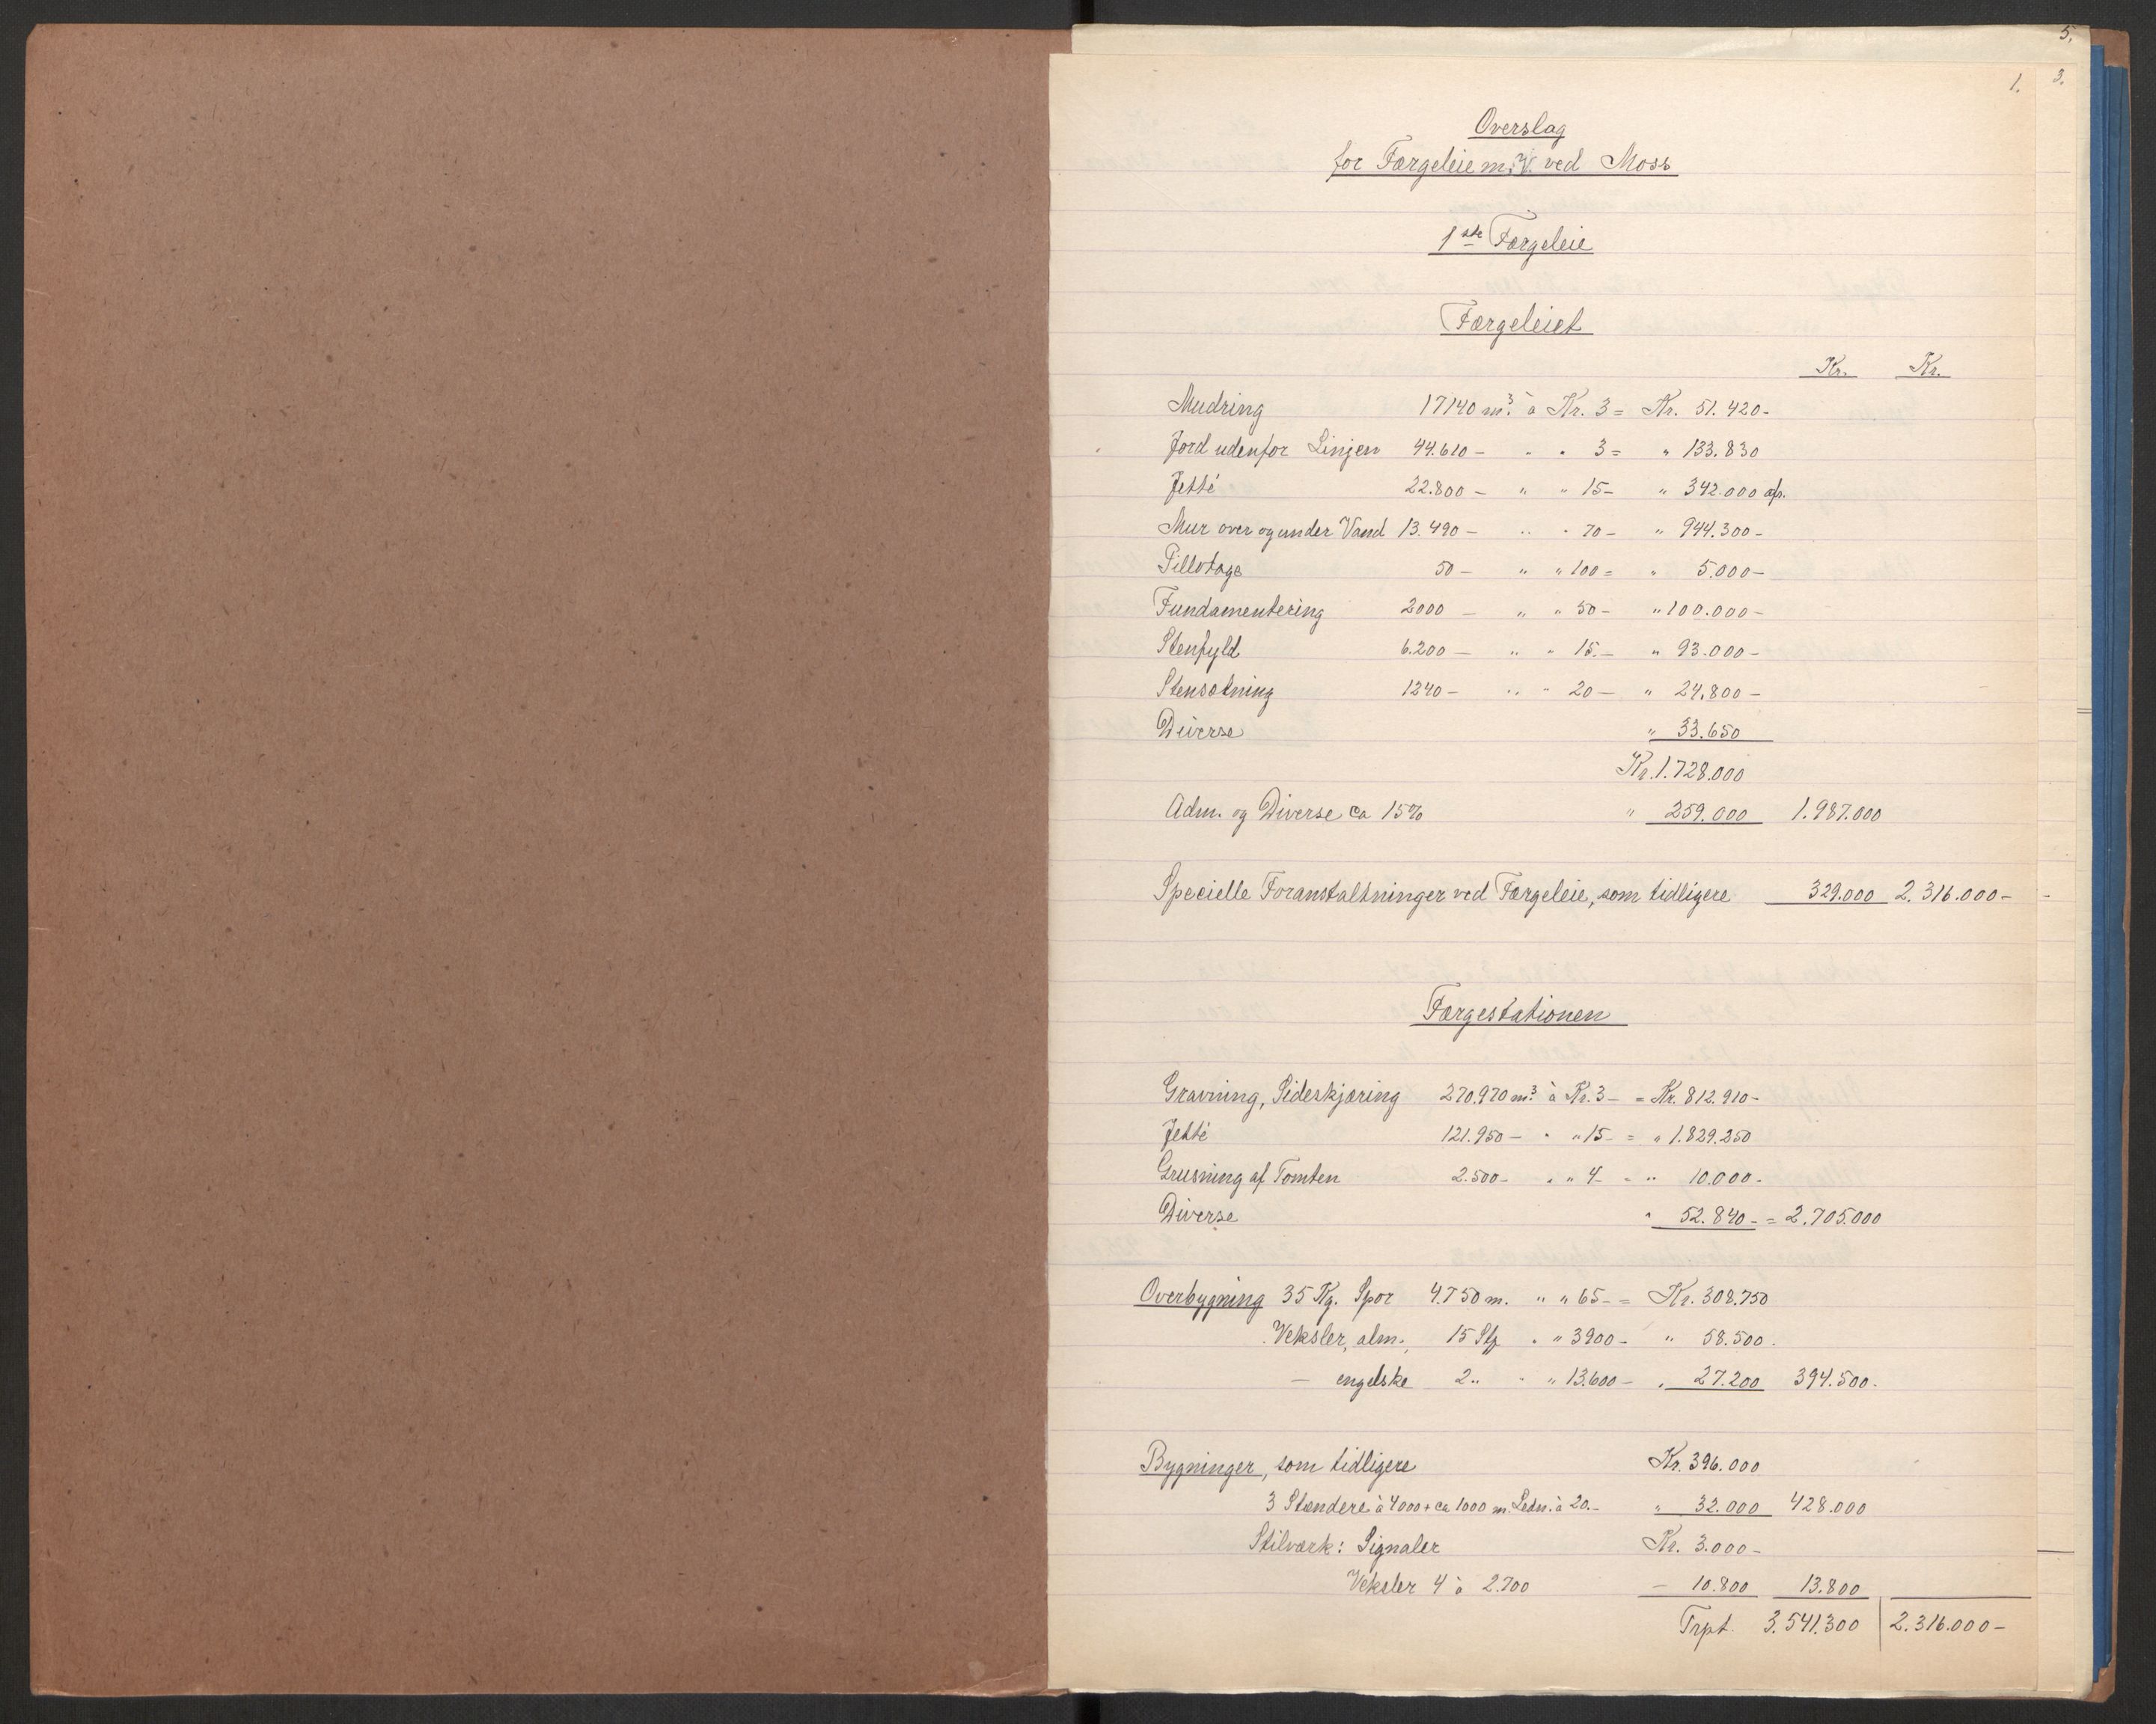 5.
1. 3.
Overslag
for Færgeleie m.V. ved Moss
1ste Færgeleie
Færgeleiet
Kr. Kr.
Mudring 17140 m3. à Kr. 3 = Kr. 51.420-
Jord udenfor Linjen 44.610 - " " 3 = " 133.830
Jetté 22.800 - " " 15 - " 342.000
Mur over og under Vand 13.490 - " " 70 - " 944.300 -
Pillotage 50 - " " 100 = " 5.000 -
Fundamentering 2000 - " " 50 - " 100.000 -
Stenfyld 6.200 - " " 15.- " 93.000 -
Stensætning 1240 - " " 20 - " 24.800 -
Diverse " 33.650
Kr. 1.728.000
Adm. og Diverse ca 15% " 259.000 1.987.000
Specielle Foranstaltninger ved Færgeleie, som tidligere 329.000 2.316.000 -
Færgestationen
Gravning, Sideskjæring 270.970 m3. à Kr. 3 - = Kr. 812.910 -
Jetté 121.950 - " " 15 - = " 1.829.250
Grusning af Tomten 2.500 - " " 4 - - " 10.000 -
Diverse " 52.840 - = 2.705.000
Overbygning 35 Kg. Spor 4.750 m. " " 65 - = Kr. 308.750
Veksler, alm., 15 Stk " " 3900 - " 58.500.
— engelske 2 " " " 13.600 - " 27.200 394.500.
Bygninger, som tidligere Kr. 396.000
3 Stændere à 4000 + ca 1000 m. Ledn. à 20.- " 32.000 428.000
Stilværk: Signaler Kr. 3.000 -
Veksler 4 à 2.700 — 10.800 13.800
Trpt. 3.541.300 2.316.000 -